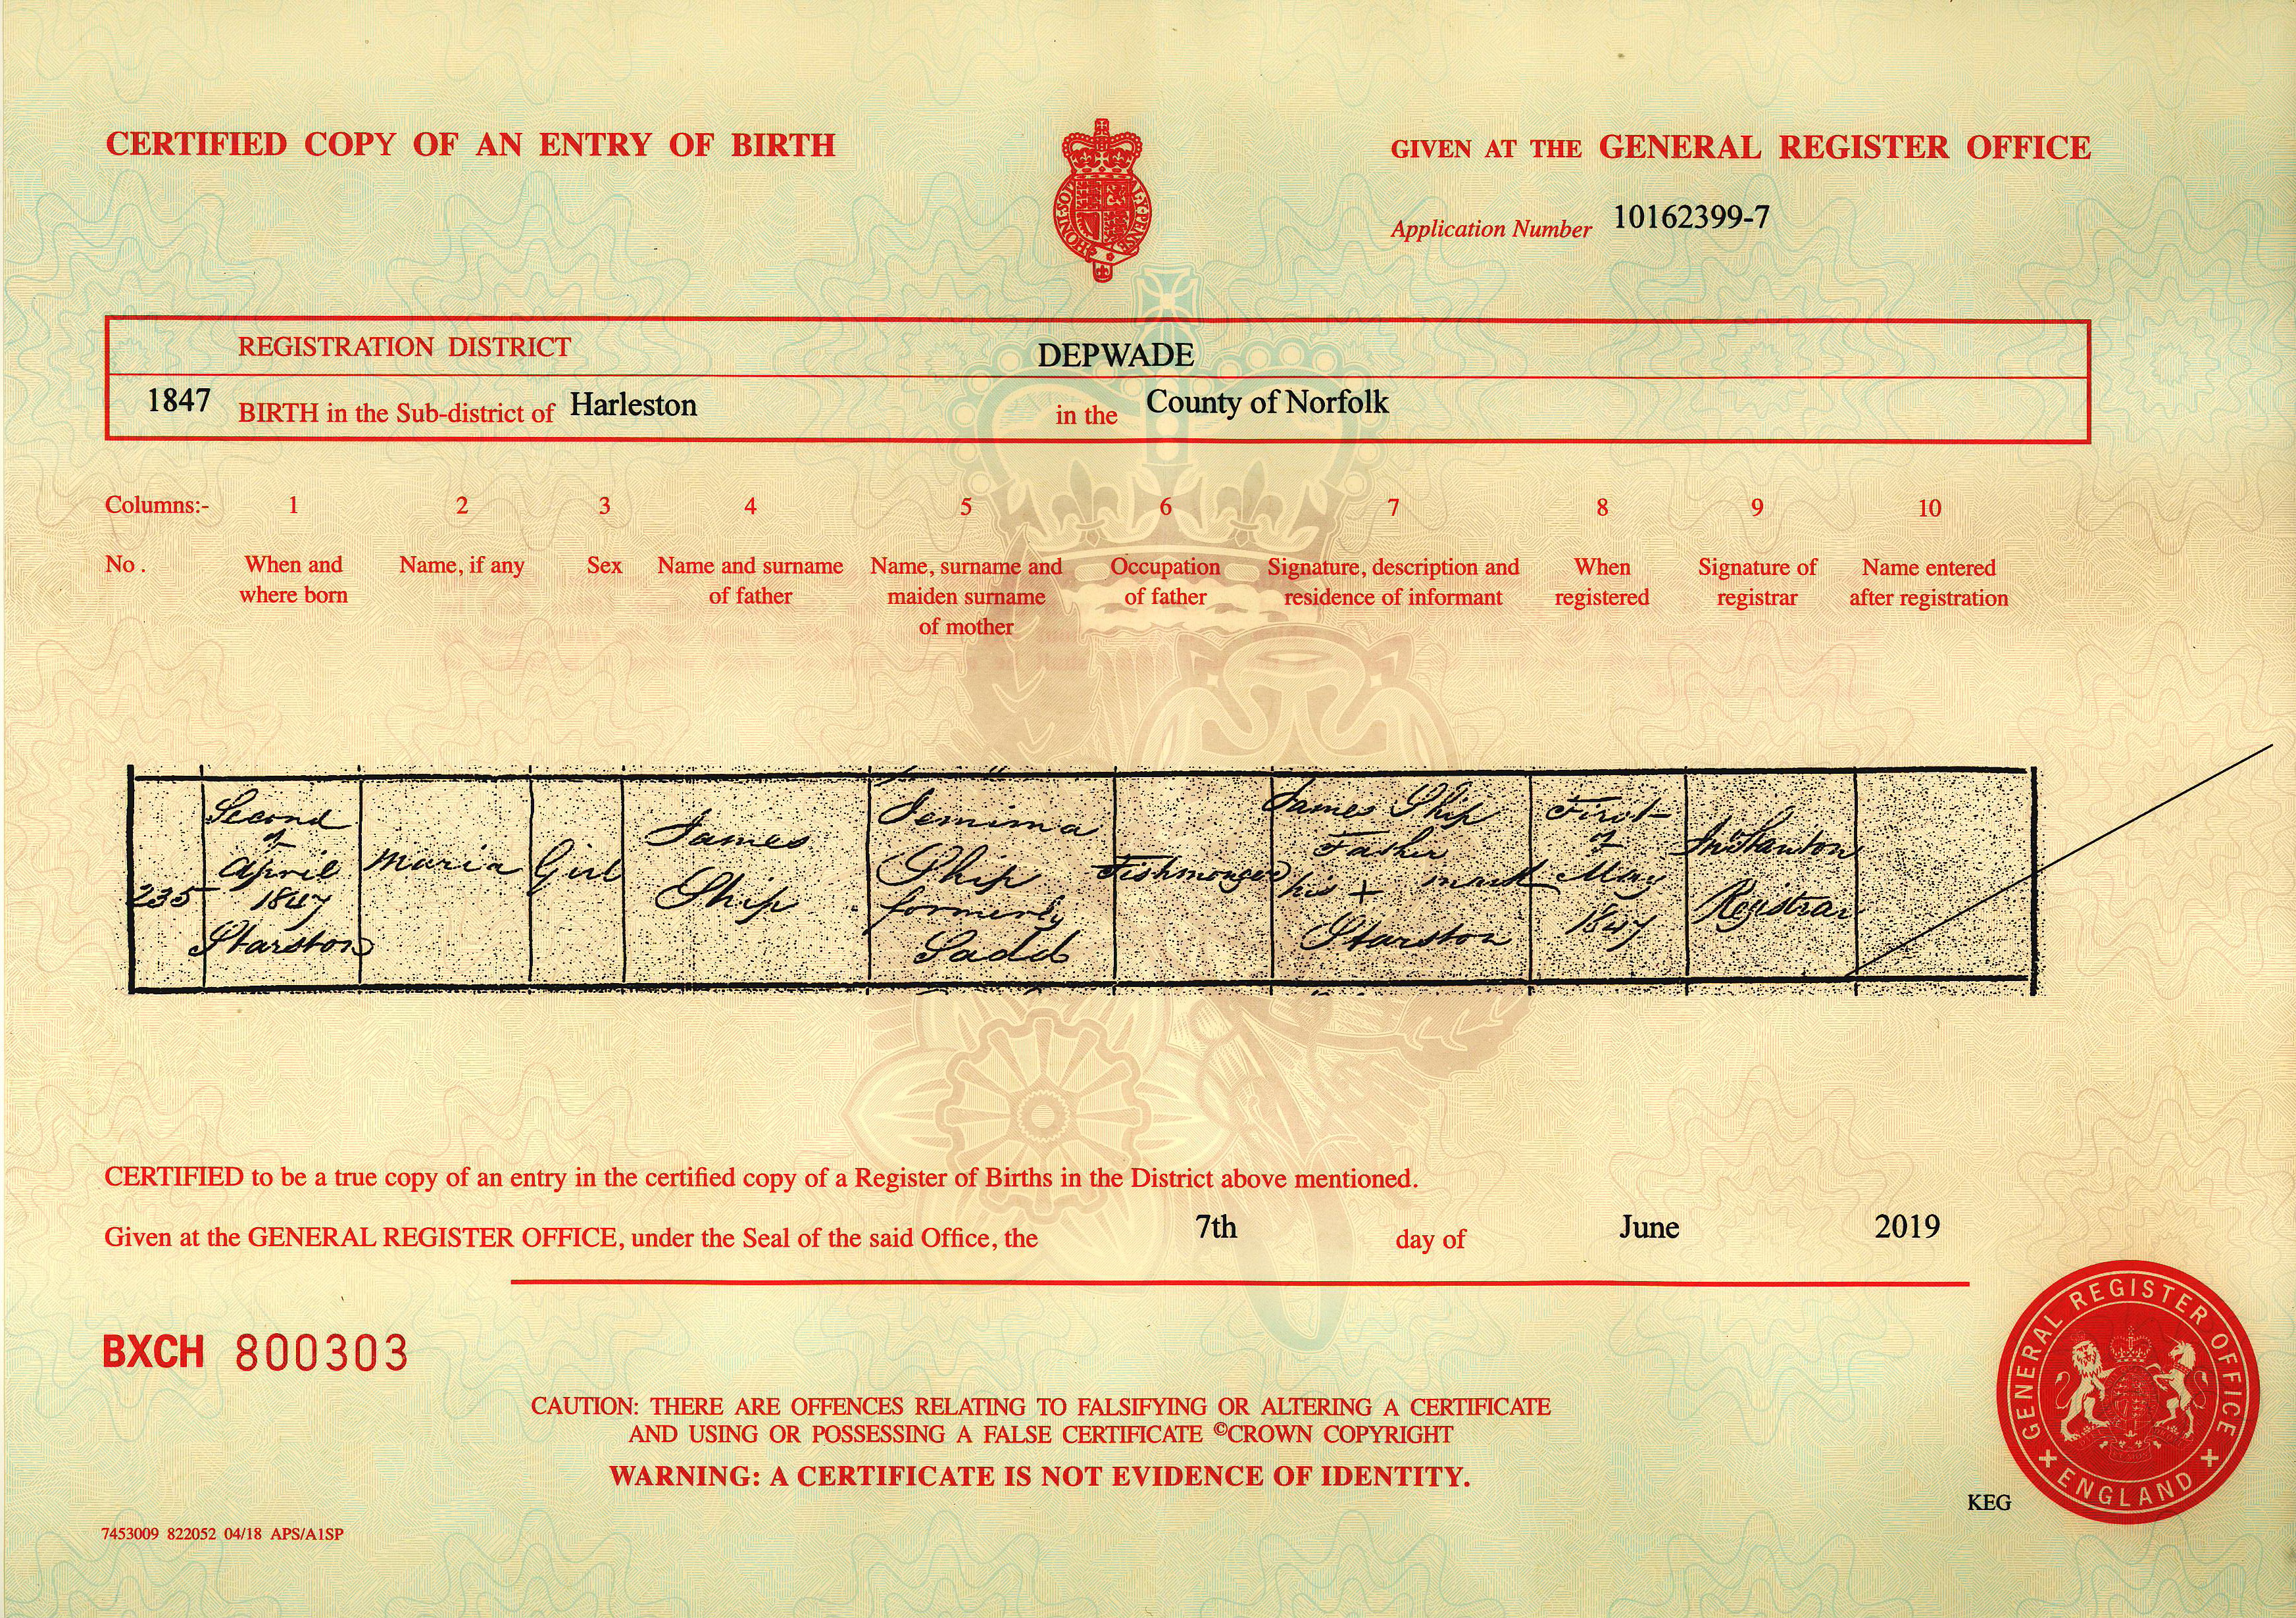 CERTIFIED COPY OF AN ENTRY OF BIRTH
GIVEN AT THE GENERAL REGISTER OFFICE
HONI SOIT
Y PENSE
Application Number 10162399-7
REGISTRATION DISTRICT DEPWADE
1847 BIRTH in the Sub-district of Harleston in the County of Norfolk
Columns:- 1 2 3 4 5 6 7 8 9 10
No. When and where born
Name, if any
Sex
Name and surname of father
Name, surname and maiden surname of mother
Occupation of father
Signature, description and residence of informant
When registered
Signature of registrar
Name entered after registration
235
Second
of
April
1847
Starston
Maria
Girl
James
Ship
Jemima
Ship
formerly
Sadd
Fishmonger
James Ship
Father
his + mark
Starston
First
of
May
1847
Stanton
Registrar
CERTIFIED to be a true copy of an entry in the certified copy of a Register of Births in the District above mentioned.
Given at the GENERAL REGISTER OFFICE, under the Seal of the said Office, the 7th day of June 2019
BXCH 800303
CAUTION: THERE ARE OFFENCES RELATING TO FALSIFYING OR ALTERING A CERTIFICATE
AND USING OR POSSESSING A FALSE CERTIFICATE ©CROWN COPYRIGHT
WARNING: A CERTIFICATE IS NOT EVIDENCE OF IDENTITY.
GENERAL REGISTER OFFICE
+ ENGLAND +
KEG
7453009 822052 04/18 APS/A1SP